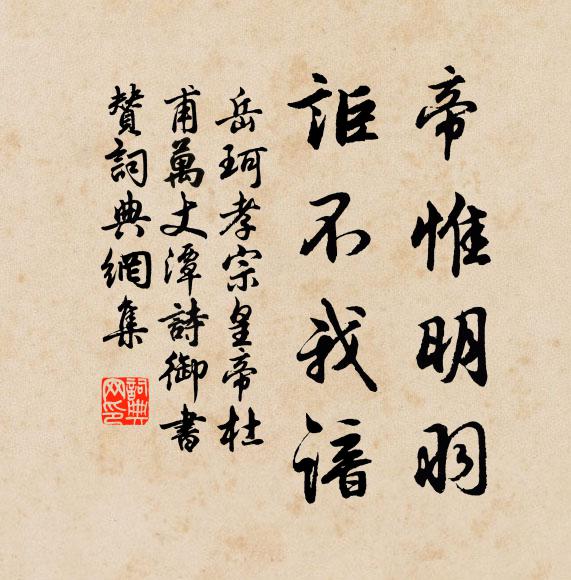 帝惟明明
詎不我諳
岳珂孝宗皇帝杜
甫萬丈潭詩御書
贊詞典網集
詞典網印